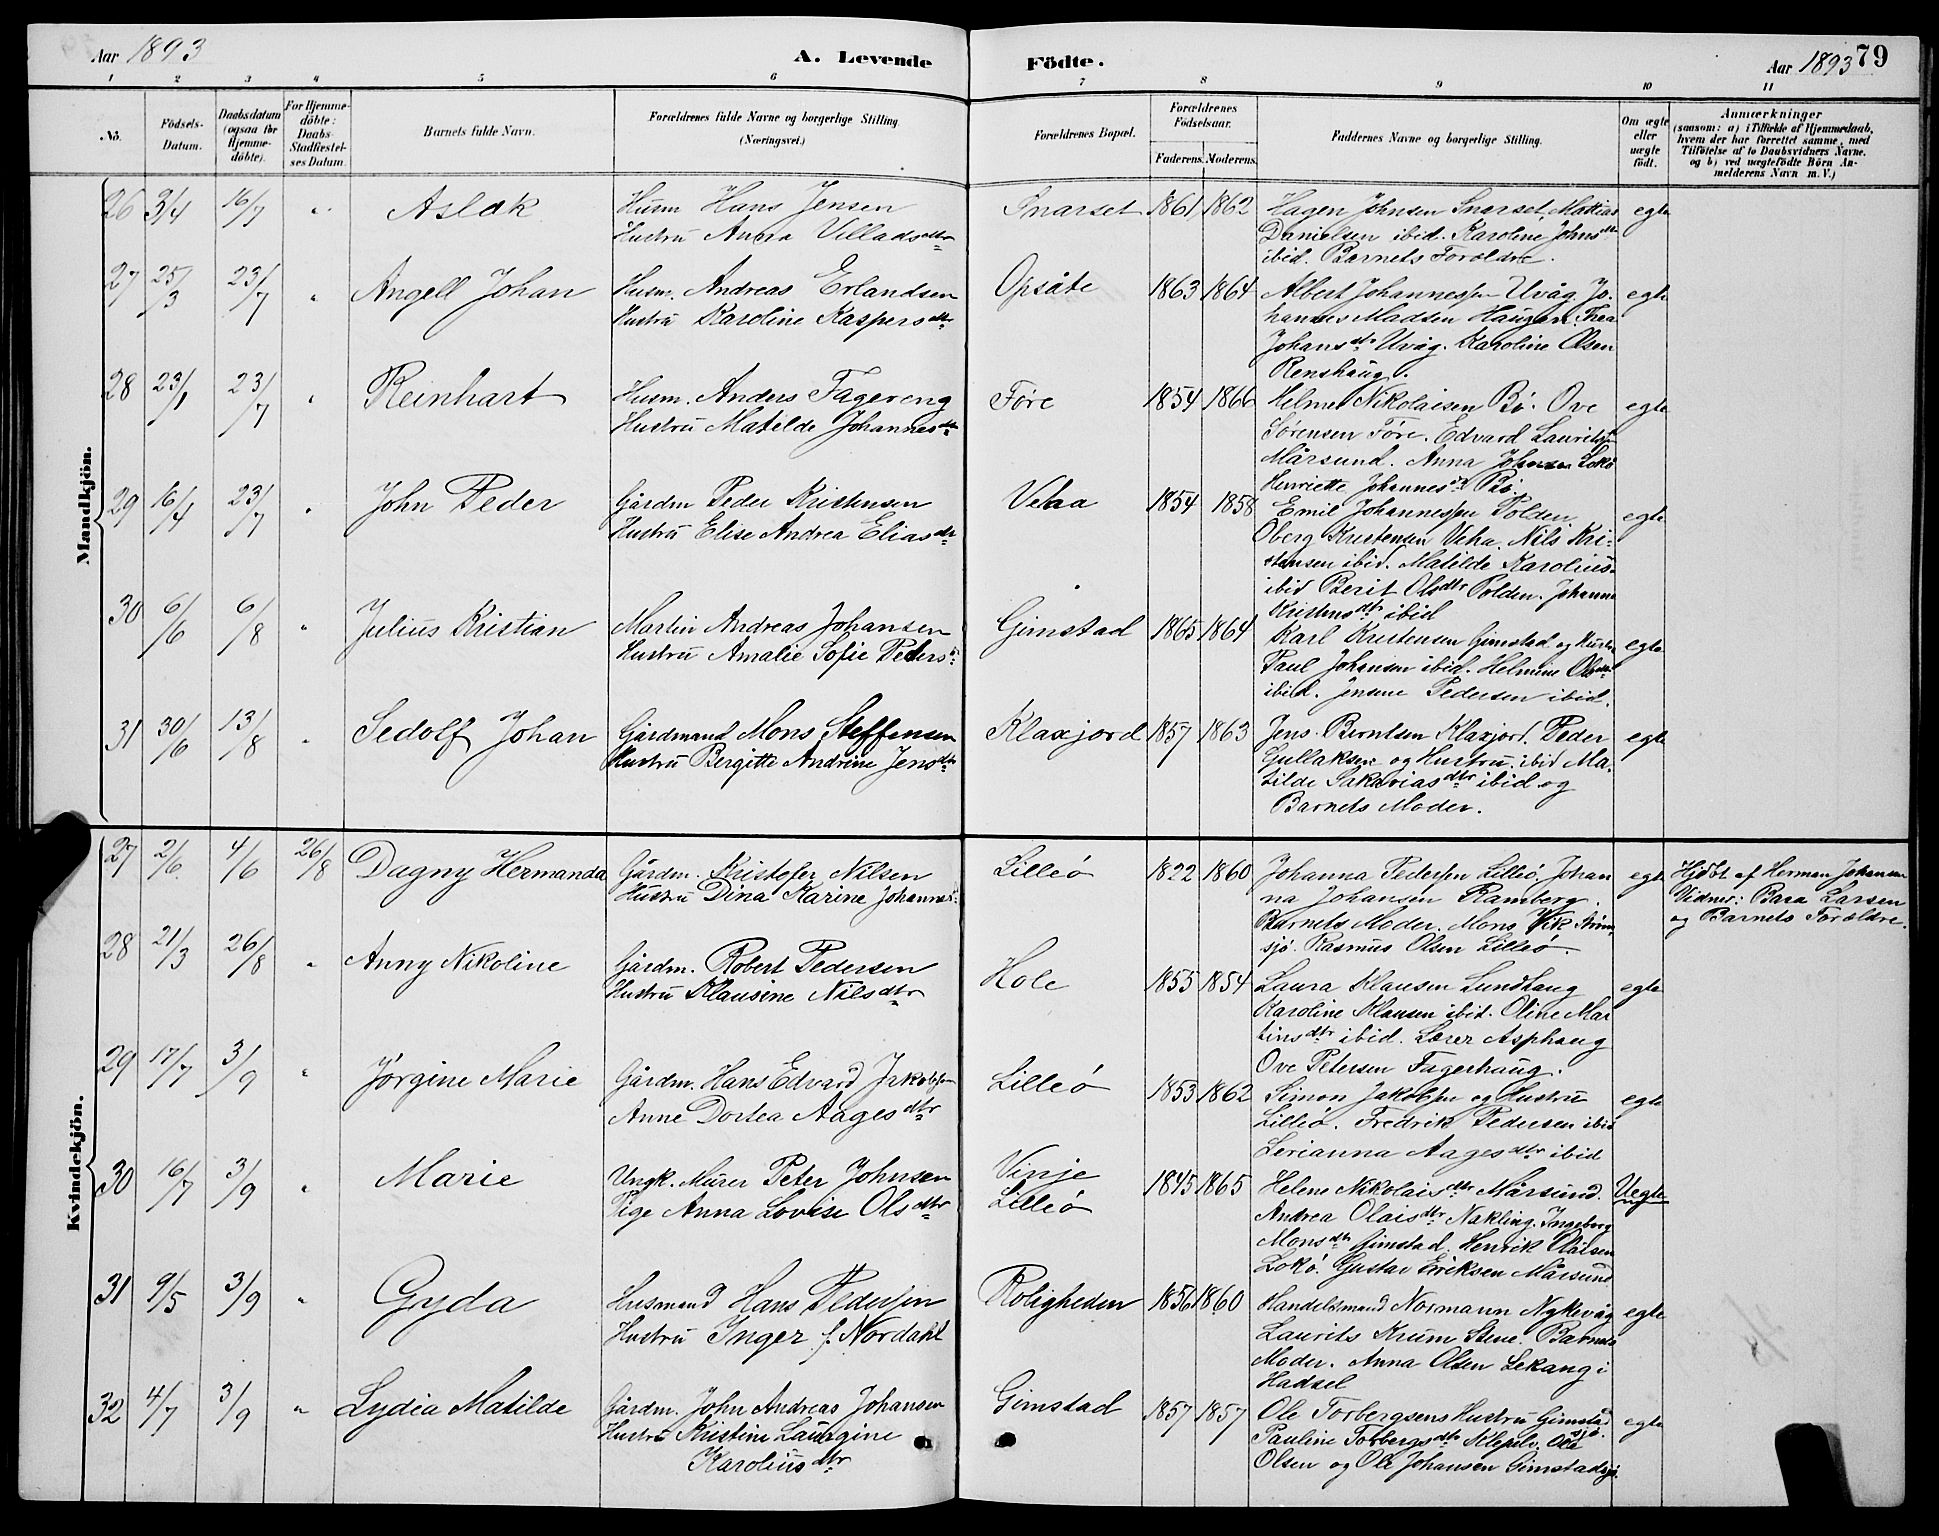 Aar 1893
A. Levende
Födte.
Aar 1893 79
1 2 3 4 5 6 7 8 9 10 11
No.
Födsels-
Datum.
Daabsdatum
(ogsaa for
Hjemme-
döbte).
For Hjemme-
döbte:
Daabs-
Stadfæstel-
ses Datum.
Barnets fulde Navn.
Forældrenes fulde Navne og borgerlige Stilling
(Næringsvei.)
Forældrenes Bopæl.
Forældrenes
Födselsaar.
Faderens. Moderens.
Faddernes Navne og borgerlige Stilling.
Om ægte
eller
uægte
födt.
Anmærkninger
(saasom: a) i Tilfælde af Hjemmedaab,
hvem der har forrettet samme, med
Tilföielse af to Daabsvidners Navne.
og b) ved uægtefödte Börn An-
melderens Navn m. V.)
Mandkjön.
26 3/4 16/7 " Aslak
Husm Hans Jensen
Hustru Anna Villadsdtr
Snarset 1861 1862
Hagen Johnsen Snarset, Mattias
Danielsen ibid. Karoline Johnsdtr
ibid. Barnets Forældre.
egte
27 25/3 23/7 " Angell Johan
Husm. Andreas Erlandsen
Hustru Karoline Kaspersdtr
Opsåte 1863 1864
Albert Johannessen Uvåg. Jo-
hannes Madsen Haugen. Thea
Johansdtr Uvåg. Karoline Olsen
Renshaug.
egte
28 23/1 23/7 " Reinhart
Husm. Anders Fagereng
Hustru Matilde Johannesdtr
Føre 1854 1866
Helmer Nikolaisen Bø. Ove
Sørensen Føre. Edvard Lauritsen
Mårsund. Anna Johnsen Lokø
Henriette Johannesdtr Bø.
egte
29 16/4 23/7 " John Peder
Gårdm Peder Kristensen
Hustru Elise Andrea Eliasdtr
Vehaa 1854 1858
Emil Johannessen Polden
Oberg Kristensen Veha. Nils Kri-
stensen ibid. Matilde Karolius-
ibid Berit Olsdtr Polden. Johanna
Kristensdtr ibid
egte
30 6/6 6/8 " Julius Kristian
Martin Andreas Johansen
Hustru Amalie Sofie Peders-
Gimstad 1865 1864
Karl Kristensen Gimstad og Hustru
Paul Johansen ibid. Helmine Olsdtr
ibid. Jensine Pedersen ibid.
egte
31 30/6 13/8 " Sedolf Johan
Gårdmand Mons Steffensen
Hustru Bergitte Andrine Jensdtr
Klaxjord 1857 1863
Jens Berntsen Klaxjord. Peder
Gullaksen og Hustru ibid Ma-
tilde Sakariasdtr ibid og
Barnets Moder.
egte
Kvindekjön.
27 2/6 4/6 26/8 Dagny Hermanda
Gårdm. Kristofer Nilsen
Hustru Dina Karine Johannes-
Lilleø 1822 1860
Johanna Pedersen Lilleø. Johan
na Johansen Ramberg.
Barnets Moder. Mons Vik
sjø. Rasmus Olsen Lilleø.
egte
Hjdöbt af Herman Johansen
Vidner: Bara Larsen
og Barnets Forældre.
28 21/3 26/8 " Anny Nikoline
Gårdm. Robert Pedersen
Hustru Klausine Nilsdtr
Hole 1855 1854
Laura Klausen Lundhaug
Karoline Klausen ibid. Oline Mar
tinsdtr ibid. Lærer Asphaug
Ove Petersen Fagerhaug.
egte
29 17/7 3/9 " Jørgine Marie
Gårdm. Hans Edvard Jakobsen
Anne Dortea Aagesdtr
Lilleø 1853 1862
Simon Jakobsen og Hustru
Lilleø. Fredrik Pedersen ibid
Lerianna Aagesdtr ibid
egte
30 16/7 3/9 " Marie
Ungk. Murer Peter Johnsen
Pige Anna Lovise Olsdtr
Vinje
Lilleø
1845 1865
Helene Nikolaisdtr Mårsund.
Andrea Olaisdtr Nakling. Ingeborg
Monsdtr Gimstad. Henrik Olaisen
Lokø. Gustav Eriksen Mårsund
Uegte
31 9/5 3/9 " Gyda
Husmand Hans Pedersen
Hustru Inger f. Nordahl
Roligheden 1856 1860
Handelsmand Normann Nykvåg
Laurits Krum Stene. Barnets
Moder. Anna Olsen Lekang i
Hadsel
egte
32 4/7 3/9 " Lydia Matilde
Gårdm. John Andreas Johansen
Hustru Kristine Laurgine
Karoliusdtr
Gimstad 1857 1857
Ole Torbergsens Hustru Gimstad
sjø.
Pauline Torbergsdtr Ole
Olsen og Ole Johansen Gimstadsjø.
egte